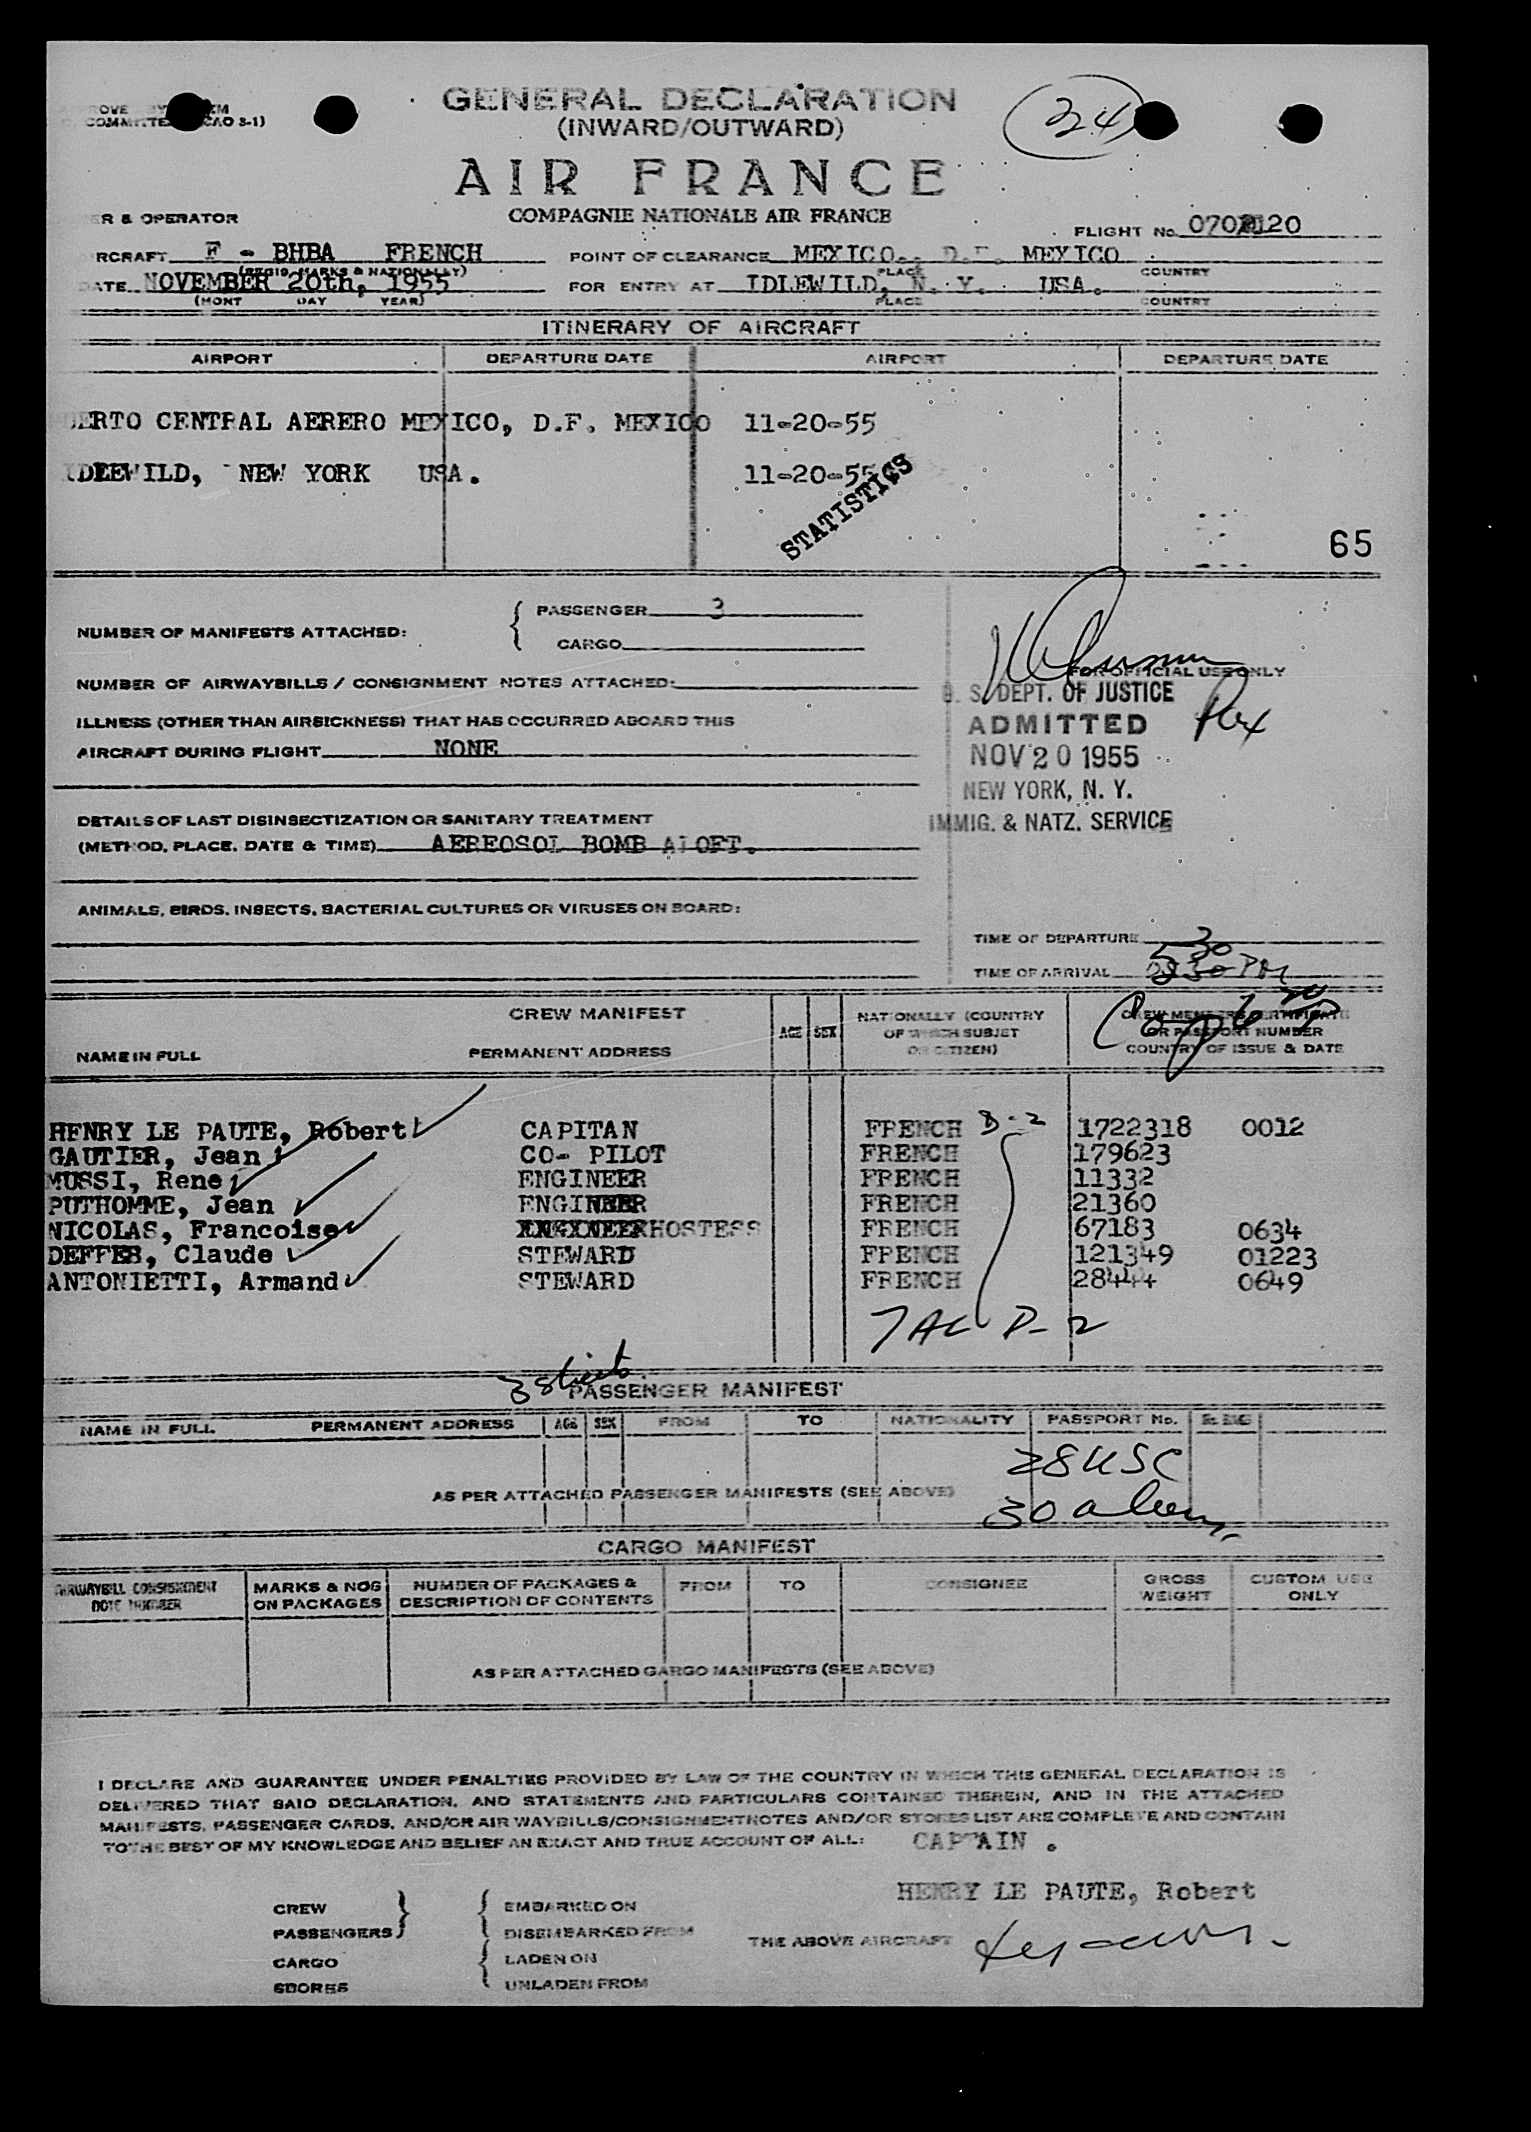 GENERAL DECLARATION
(INWARD/OUTWARD)
24
AIR FRANCE
COMPAGNIE NATIONALE AIR FRANCE
ER & OPERATOR
FLIGHT No. 070 120
RCRAFT F - BHBA FRENCH
(REGIS. MARKS & NATIONALLY)
POINT OF CLEARANCE MEXICO., D.F. MEXICO
PLACE COUNTRY
ATE NOVEMBER 20th, 1955
(MONT DAY YEAR)
FOR ENTRY AT IDLEWILD, N. Y. USA.
PLACE COUNTRY
ITINERARY OF AIRCRAFT
AIRPORT DEPARTURE DATE AIRPORT DEPARTURE DATE
UERTO CENTRAL AERERO MEXICO, D.F. MEXICO 11-20-55
IDEEWILD, NEW YORK USA. 11-20-55
STATISTICS
65
NUMBER OF MANIFESTS ATTACHED:
PASSENGER 3
CARGO
NUMBER OF AIRWAYBILLS / CONSIGNMENT NOTES ATTACHED:
ILLNESS (OTHER THAN AIRSICKNESS) THAT HAS OCCURRED ABOARD THIS
AIRCRAFT DURING FLIGHT NONE
FOR OFFICIAL USE ONLY
U. S. DEPT. OF JUSTICE
ADMITTED
NOV 20 1955
NEW YORK, N. Y.
IMMIG. & NATZ. SERVICE
DETAILS OF LAST DISINSECTIZATION OR SANITARY TREATMENT
(METHOD, PLACE, DATE & TIME) AEREOSOL BOMB ALOFT.
ANIMALS, BIRDS, INSECTS, BACTERIAL CULTURES OR VIRUSES ON BOARD:
TIME OF DEPARTURE
TIME OF ARRIVAL 530 PM
CREW MANIFEST
NAME IN FULL PERMANENT ADDRESS AGE SEX
NATIONALLY (COUNTRY
OF WHICH SUBJET
OR CITIZEN)
CREW MEMBERS CERTIFICATE
OR PASSPORT NUMBER
COUNTRY OF ISSUE & DATE
HENRY LE PAUTE, Robert CAPITAN FRENCH D-2 1722318 0012
GAUTIER, Jean CO- PILOT FRENCH 179623
MUSSI, Rene ENGINEER FRENCH 11332
PUTHOMME, Jean ENGINEER FRENCH 21360
NICOLAS, Francoise HOSTESS FRENCH 67183 0634
DEFFER, Claude STEWARD FRENCH 121349 01223
ANTONIETTI, Armand STEWARD FRENCH 28444 0649
7 AC D-2
3 sheets
PASSENGER MANIFEST
NAME IN FULL PERMANENT ADDRESS AGE SEX FROM TO NATIONALITY PASSPORT No.
28 USC
AS PER ATTACHED PASSENGER MANIFESTS (SEE ABOVE)
30 aliens
CARGO MANIFEST
AIRWAYBILL CONSIGNMENT
NOTE NUMBER
MARKS & NOS
ON PACKAGES
NUMBER OF PACKAGES &
DESCRIPTION OF CONTENTS
FROM TO CONSIGNEE
GROSS
WEIGHT
CUSTOM USE
ONLY
AS PER ATTACHED CARGO MANIFESTS (SEE ABOVE)
I DECLARE AND GUARANTEE UNDER PENALTIES PROVIDED BY LAW OF THE COUNTRY IN WHICH THIS GENERAL DECLARATION IS
DELIVERED THAT SAID DECLARATION, AND STATEMENTS AND PARTICULARS CONTAINED THEREIN, AND IN THE ATTACHED
MANIFESTS, PASSENGER CARDS, AND/OR AIR WAYBILLS/CONSIGNMENTNOTES AND/OR STORES LIST ARE COMPLETE AND CONTAIN
TO THE BEST OF MY KNOWLEDGE AND BELIEF AN EXACT AND TRUE ACCOUNT OF ALL: CAPTAIN .
HENRY LE PAUTE, Robert
CREW
PASSENGERS
CARGO
SDORES
EMBARKED ON
DISEMBARKED FROM
LADEN ON
UNLADEN FROM
THE ABOVE AIRCRAFT